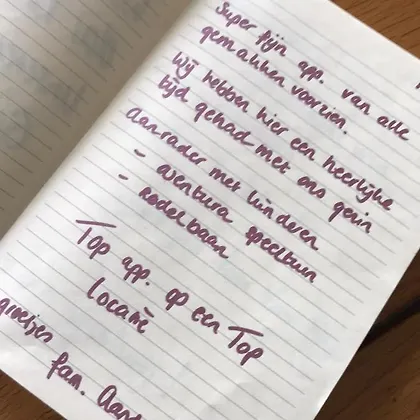 Super fijn app. van alle
gemakken voorzien.
Wij hebben hier een heerlijke
tijd gehad met ons gezin
Aanrader met kinderen
- aventura speeltuin
- Rodelbaan
Top app. op een Top
Locatie
groetjes
fam.